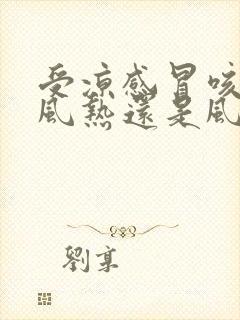 受凉感冒咳
風熱還是風
劉享